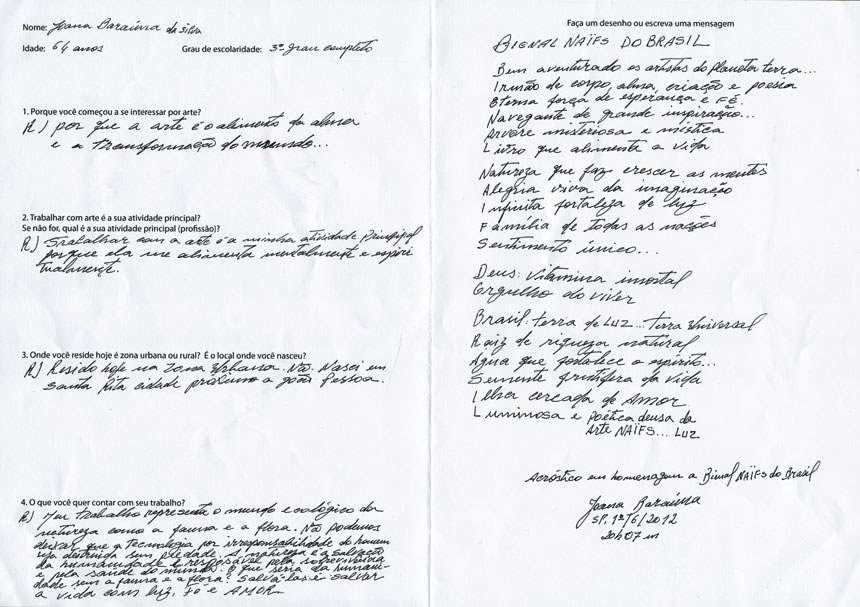 Nome: Joana Baraúna da Silva
Idade: 64 anos Grau de escolaridade: 3º grau completo
1. Porque você começou a se interessar por arte?
R) por que a arte é o alimento da alma
e a transformação do mundo...
2. Trabalhar com arte é a sua atividade principal?
Se não for, qual é a sua atividade principal (profissão)?
R.) Trabalhar com a arte é a minha atividade Principal
porque ela me alimenta mentalmente e espiri
tualmente.
3. Onde você reside hoje é zona urbana ou rural? É o local onde você nasceu?
R) Resido hoje na Zona Urbana. Não. Nasci em
Santa Rita cidade proximo a João Pessoa.
4. O que você quer contar com seu trabalho?
R) Meu trabalho representa o mundo ecológico da
natureza como a fauna e a flora. Não podemos
deixar que a Tecnologia por irresponsabilidade do homem
seja destruida sem piedade. A natureza é a salvação
da humanidade e responsável pela sobrevivência
e pela saúde do mundo. O que seria da humani-
dade sem a fauna e a flora? Salvá-las é salvar
a vida com luz, Fé e AMOR.
Faça um desenho ou escreva uma mensagem
BIENAL NAÏFS DO BRASIL
Bem aventurado os artistas do planeta terra...
Irmão de corpo, alma, criação e poesia
Eterna força de esperança e FÉ.
Navegante de grande inspiração...
Arvore misteriosa e mística
Livro que alimenta a vida
Natureza que faz crescer as mentes
Alegria viva da imaginação
Infinita fortaleza de luz
Família de todas as nações
Sentimento único...
Deus: Vitamina imortal
Orgulho do viver
Brasil: terra de LUZ... Terra Universal
Raiz de riqueza natural
Agua que fortalece o espírito...
Semente frutífera da vida
Ilha cercada de AMOR
Luminosa e poética deusa da
Arte NAÏFS... LUZ
Acróstico em homenagem a Bienal NAÏFS do Brasil
Joana Baraúna
SP, 1º/6/2012
20h07 m